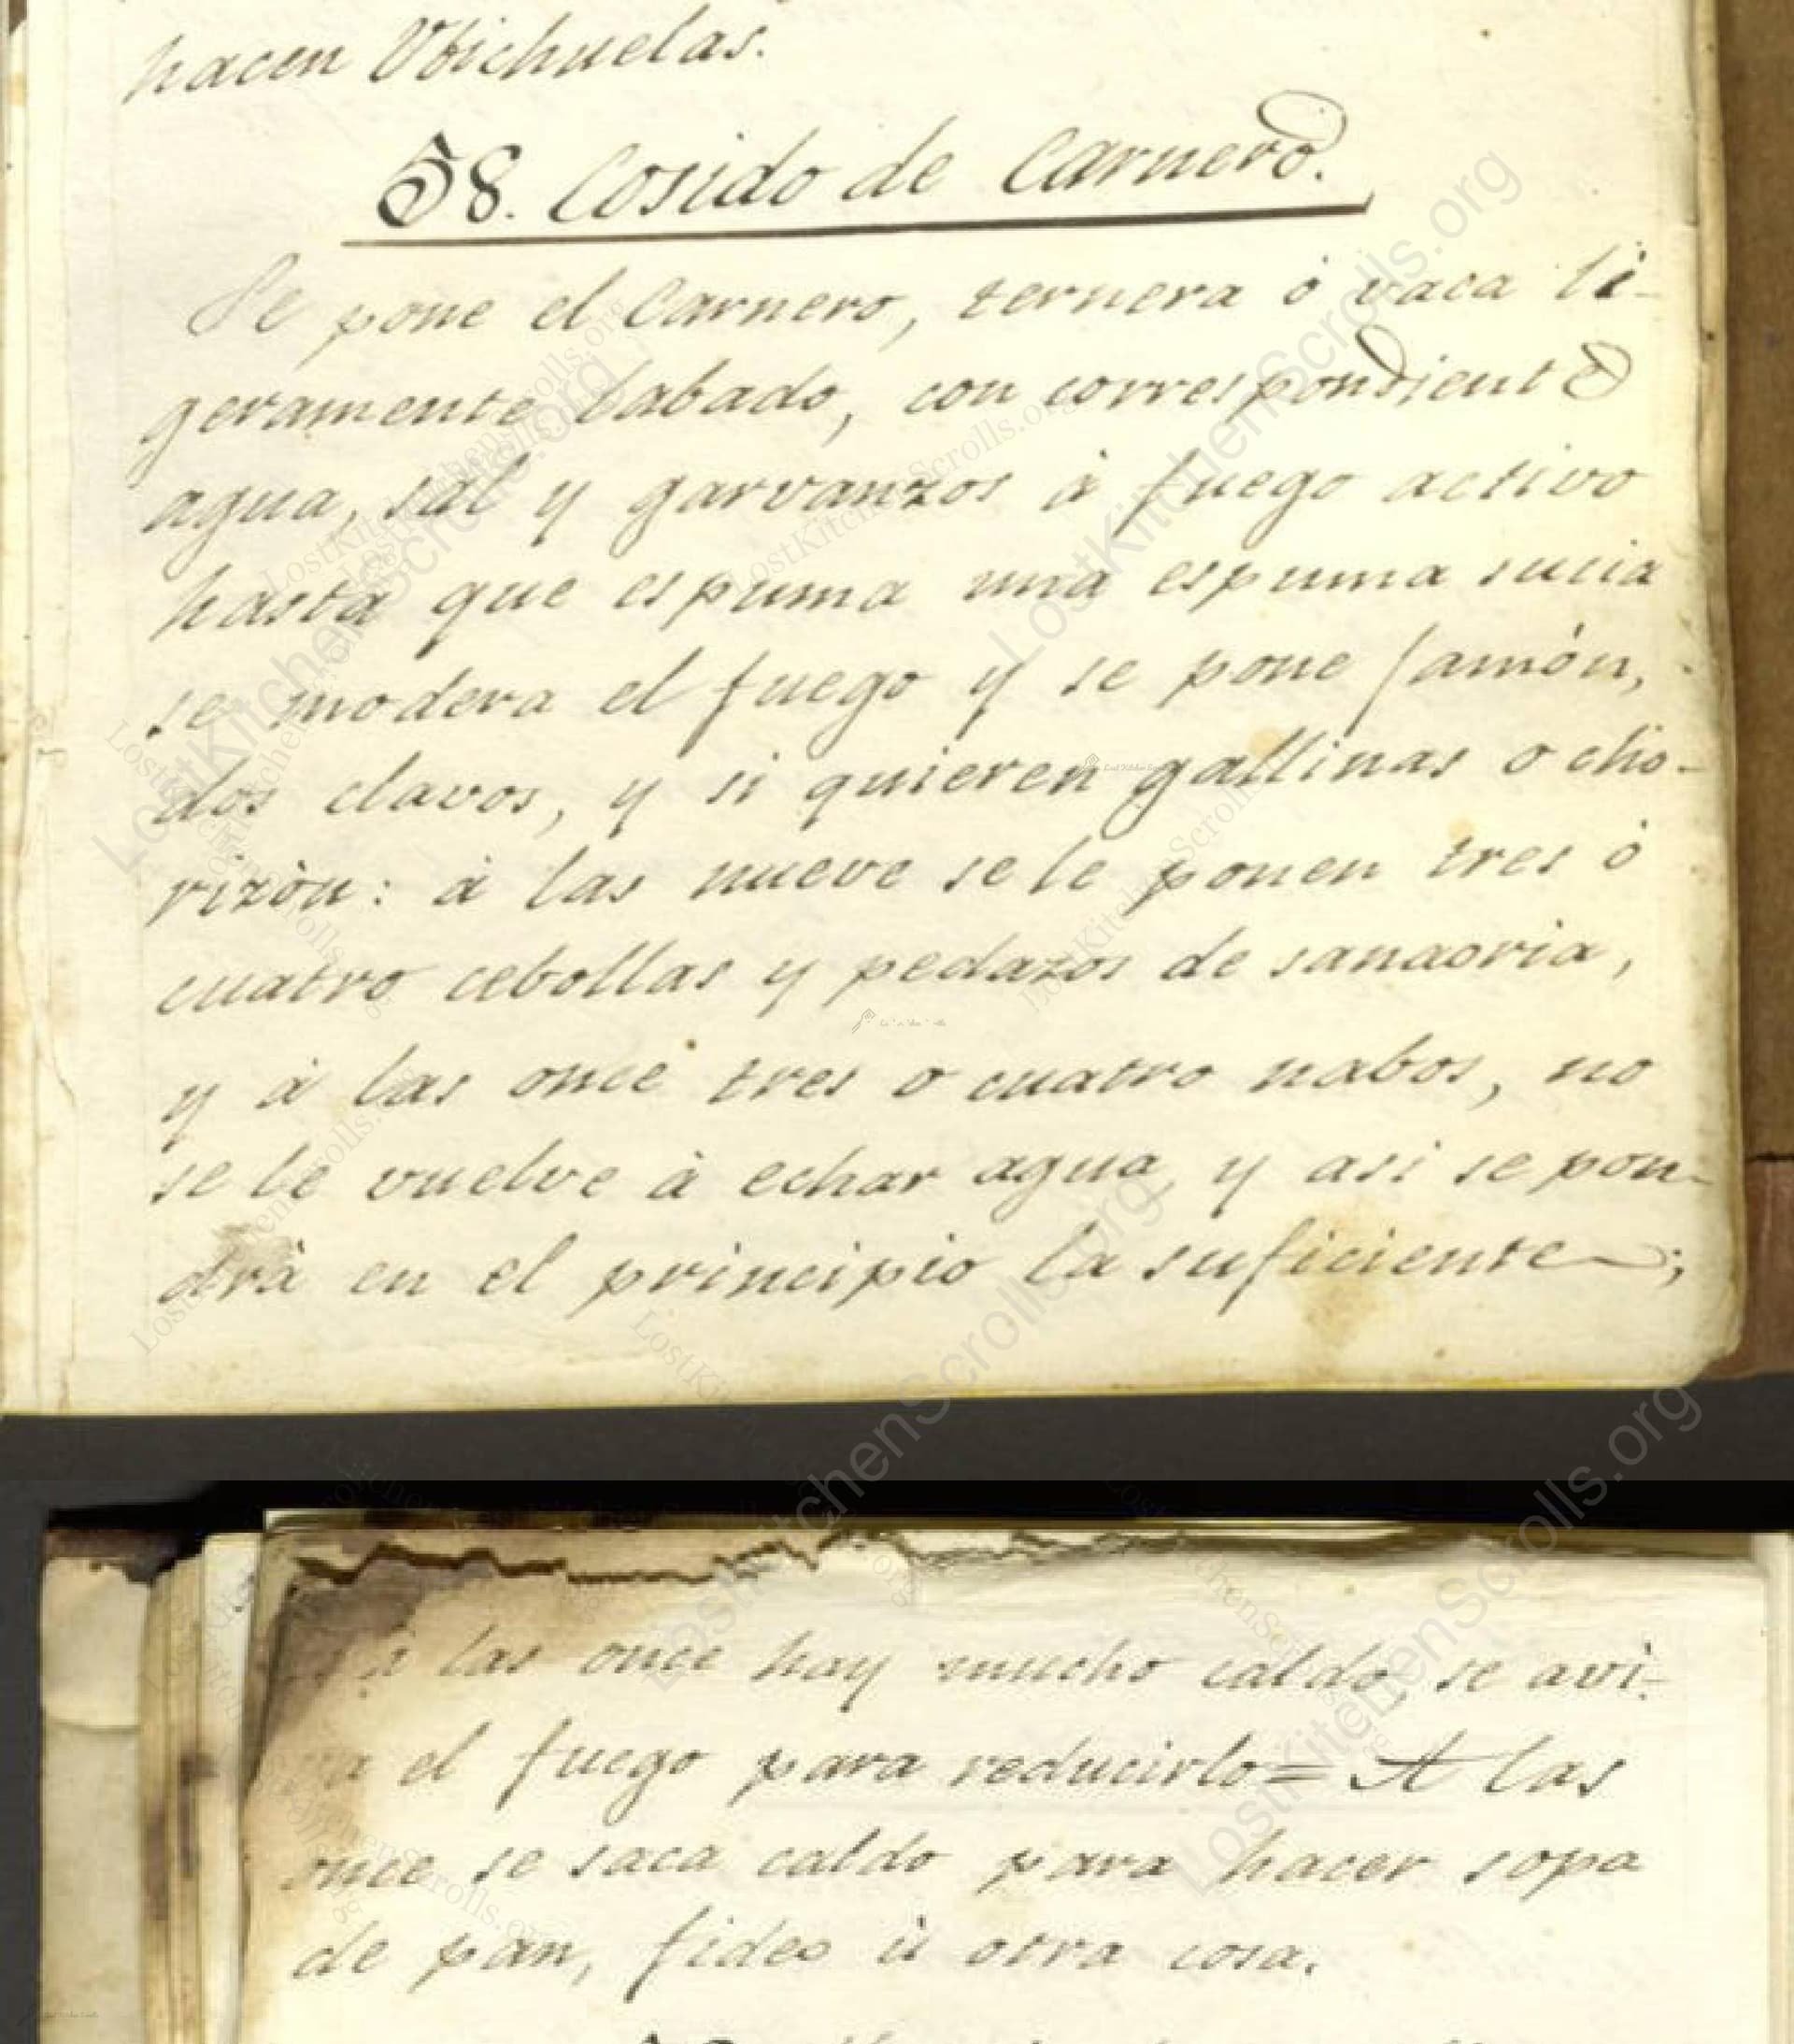 hacen Vbichuelas.
58. Cosido de Carnero.
Se pone el Carnero, ternera ó vaca li-
geramente labado, con correspondiente
agua, sal y garvanzos à fuego activo
hasta que espuma una espuma sucia
se modera el fuego y se pone Jamón,
dos clavos, y si quieren gallinas o cho-
rizòn: à las nueve se le ponen tres ó
cuatro cebollas y pedazos de sanaoria,
y à las once tres o cuatro nabos, no
se le vuelve à echar agua y asi se pon-
drà en el principio la suficiente;
à las once hay mucho caldo, se avi-
va el fuego para reducirlo = A las
once se saca caldo para hacer sopa
de pan, fideo ù otra cosa.